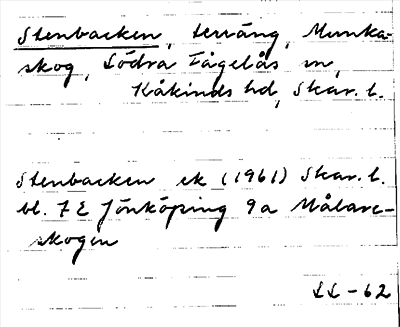 Stenbacken, terräng, Munka-
skog, Södra Fågelås sn,
Kåkinds hd, Skar. l.
Stenbacken ek (1961) Skar. l.
bl. 7 E Jönköping 9a Målare-
skogen
LL-62